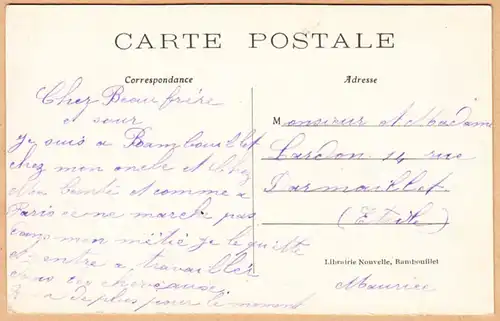 CARTE POSTALE
Correspondance
Cher Beau frère
et sœur
Je suis a Rambouillet
chez mon oncle et chez
Ma tante et comme a
Paris ca ne marche pas
dans mon métié je le quitte
et entre a travailler
dans
de plus pour le moment
Adresse
Monsieur et Madame
Lardon 14 rue
Darmaillet
(Etoile)
Librairie Nouvelle, Rambouillet
Maurice